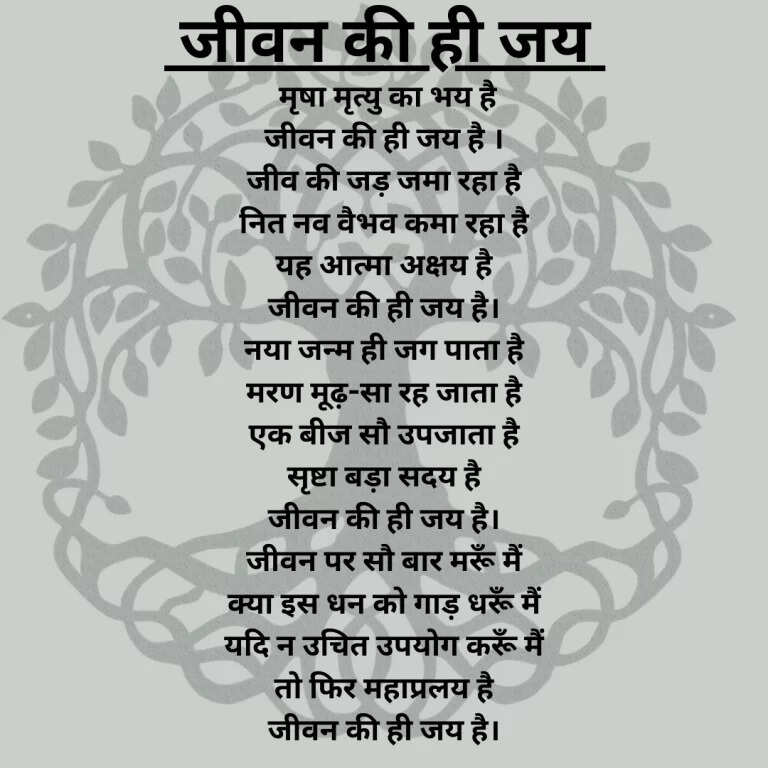 जीवन की ही जय
मृषा मृत्यु का भय है
जीवन की ही जय है ।
जीव की जड़ जमा रहा है
नित नव वैभव कमा रहा है
यह आत्मा अक्षय है
जीवन की ही जय है।
नया जन्म ही जग पाता है
मरण मूढ़-सा रह जाता है
एक बीज सौ उपजाता है
सृष्टा बड़ा सदय है
जीवन की ही जय है।
जीवन पर सौ बार मरूँ मैं
क्या इस धन को गाड़ धरूँ मैं
यदि न उचित उपयोग करूँ मैं
तो फिर महाप्रलय है
जीवन की ही जय है।